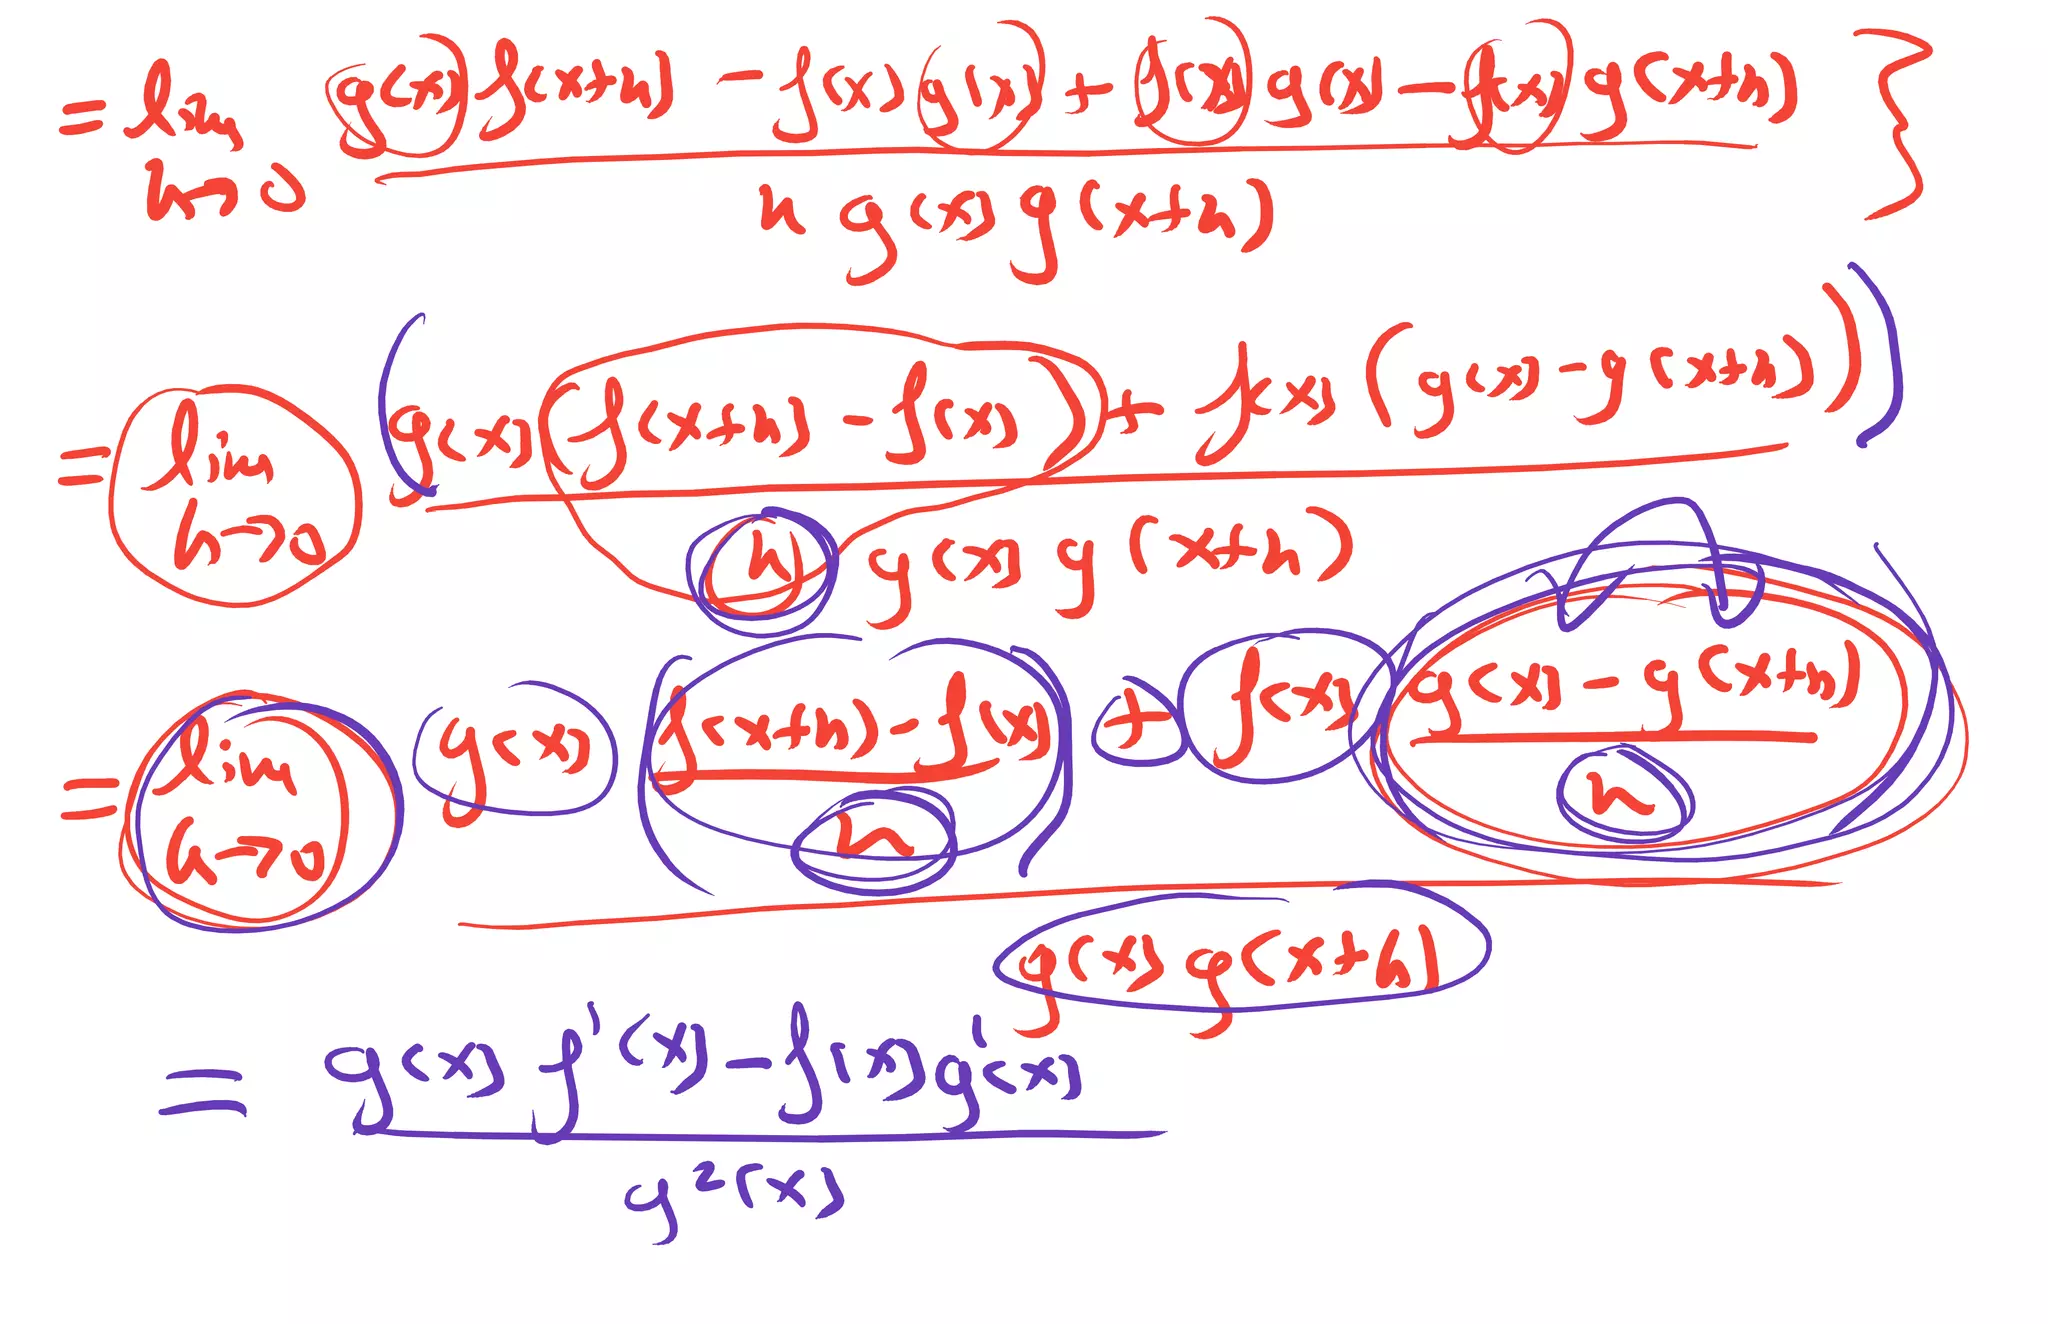 = lim h→0 g(x) f(x+h) - f(x) g(x) + f(x) g(x) - f(x) g(x+h) }
h g(x) g(x+h)
= lim h→0 (g(x) (f(x+h) - f(x)) + f(x) (g(x) - g(x+h)))
h g(x) g(x+h)
= lim h→0 g(x) (f(x+h) - f(x) / h) + f(x) g(x) - g(x+h) / h
g(x) g(x+h)
= g(x) f'(x) - f(x) g'(x)
g²(x)